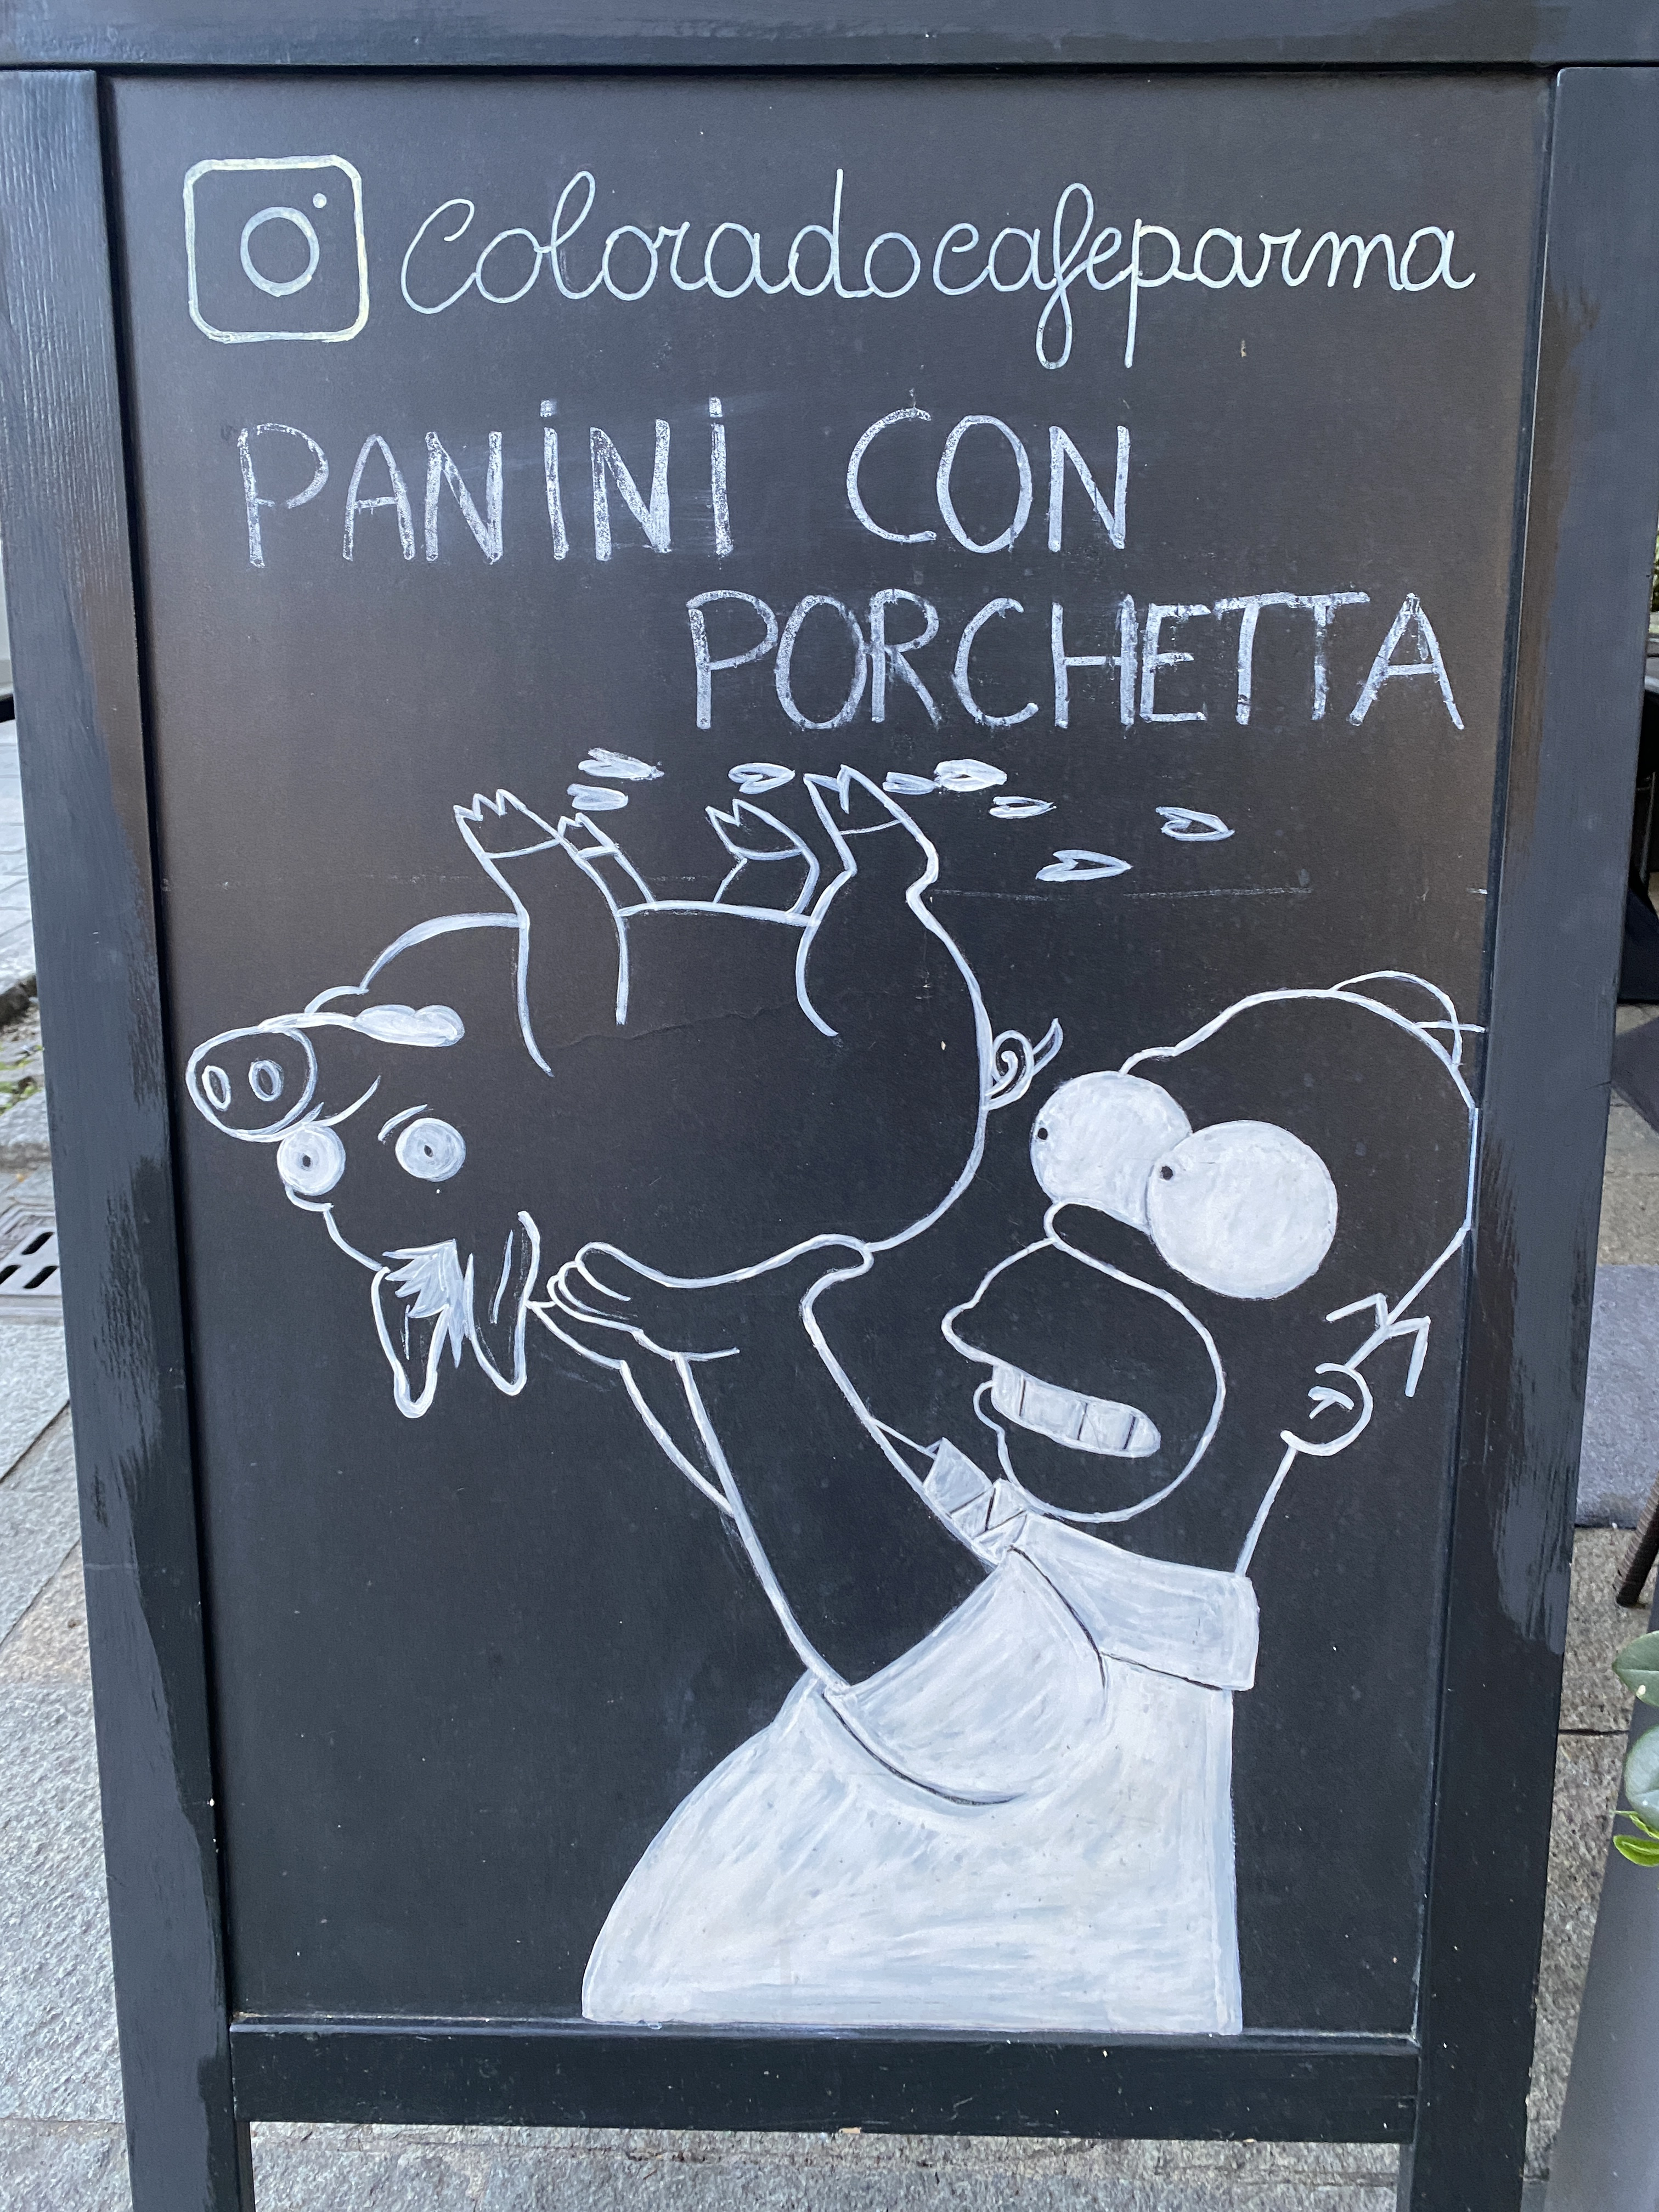 coloradocafeparma
PANINI CON
PORCHETTA